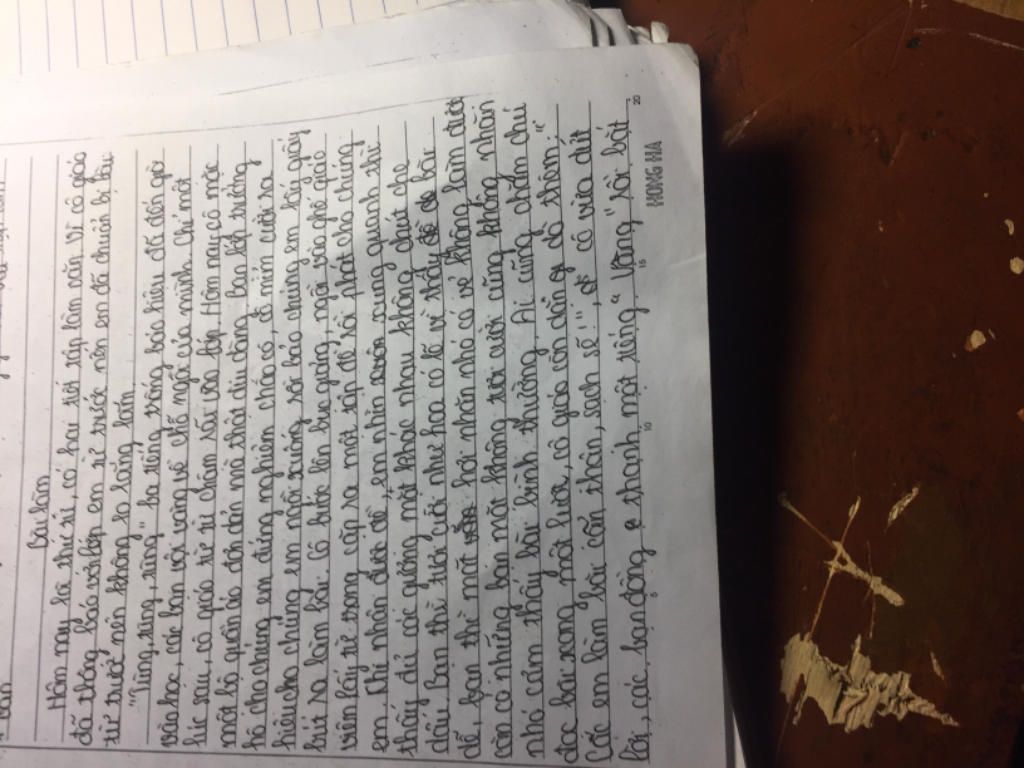 Bài làm
Hôm nay là thứ tư, có hai tiết tập làm văn. Vì cô giáo
đã thông báo với lớp em từ trước nên em đã chuẩn bị bài
từ trước nên không lo lắng lắm.
"Tùng, tùng, tùng" ba tiếng trống báo hiệu đã đến giờ
vào học, các bạn vội vàng về chỗ ngồi của mình. Chỉ một
lúc sau, cô giáo từ từ chậm rãi vào lớp. Hôm nay cô mặc
một bộ quần áo đơn giản mà thật dịu dàng. Bạn lớp trưởng
hô cho chúng em đứng nghiêm chào cô, cô mỉm cười ra
hiệu cho chúng em ngồi xuống rồi bảo chúng em lấy giấy
bút ra làm bài. Cô bước lên bục giảng, ngồi vào ghế giáo
viên lấy từ trong cặp ra một tập đề rồi phát cho chúng
em. Khi nhận được đề, em nhìn xung quanh thì
thấy đủ các gương mặt khác nhau không chút che
dấu. Bạn thì tươi cười như hoa có lẽ vì thấy đề bài
dễ, bạn thì mặt hơi nhăn nhó có vẻ không làm được
còn có những bạn mặt không tươi cười cũng không nhăn
nhó cảm thấy bài bình thường. Ai cũng chăm chú
đọc bài xong một lượt, cô giáo còn dặn dò thêm:
Các em làm bài cẩn thận, sạch sẽ!", cô vừa dứt
lời, các bạn đồng thanh một tiếng "Vâng" rồi bắt
5 10 15 20
HONG HA